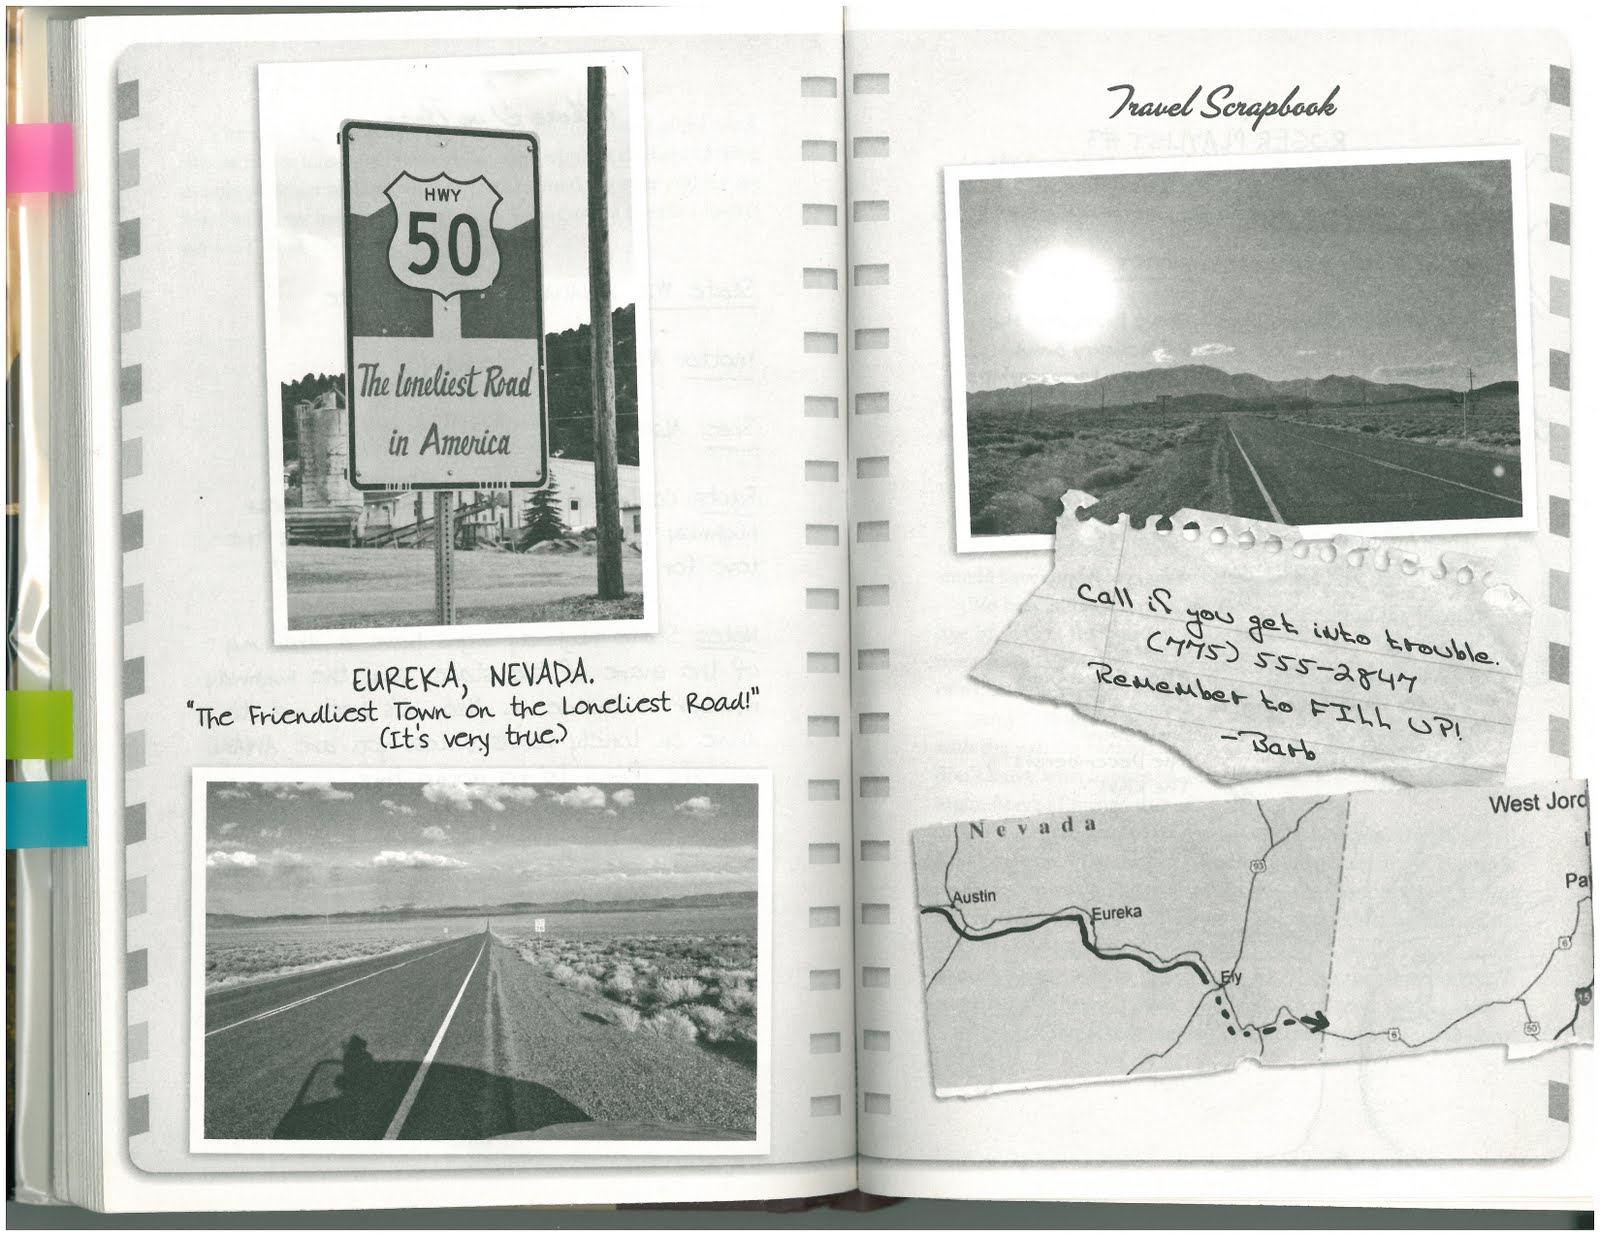 HWY
50
The Loneliest Road
in America
EUREKA, NEVADA.
"The Friendliest Town on the Loneliest Road!"
(It's very true.)
Travel Scrapbook
Call if you get into trouble.
(775) 555-2847
Remember to FILL UP!
-Barb
Nevada
West Jord
Pa
93
Austin
Eureka
6
Ely
6
50